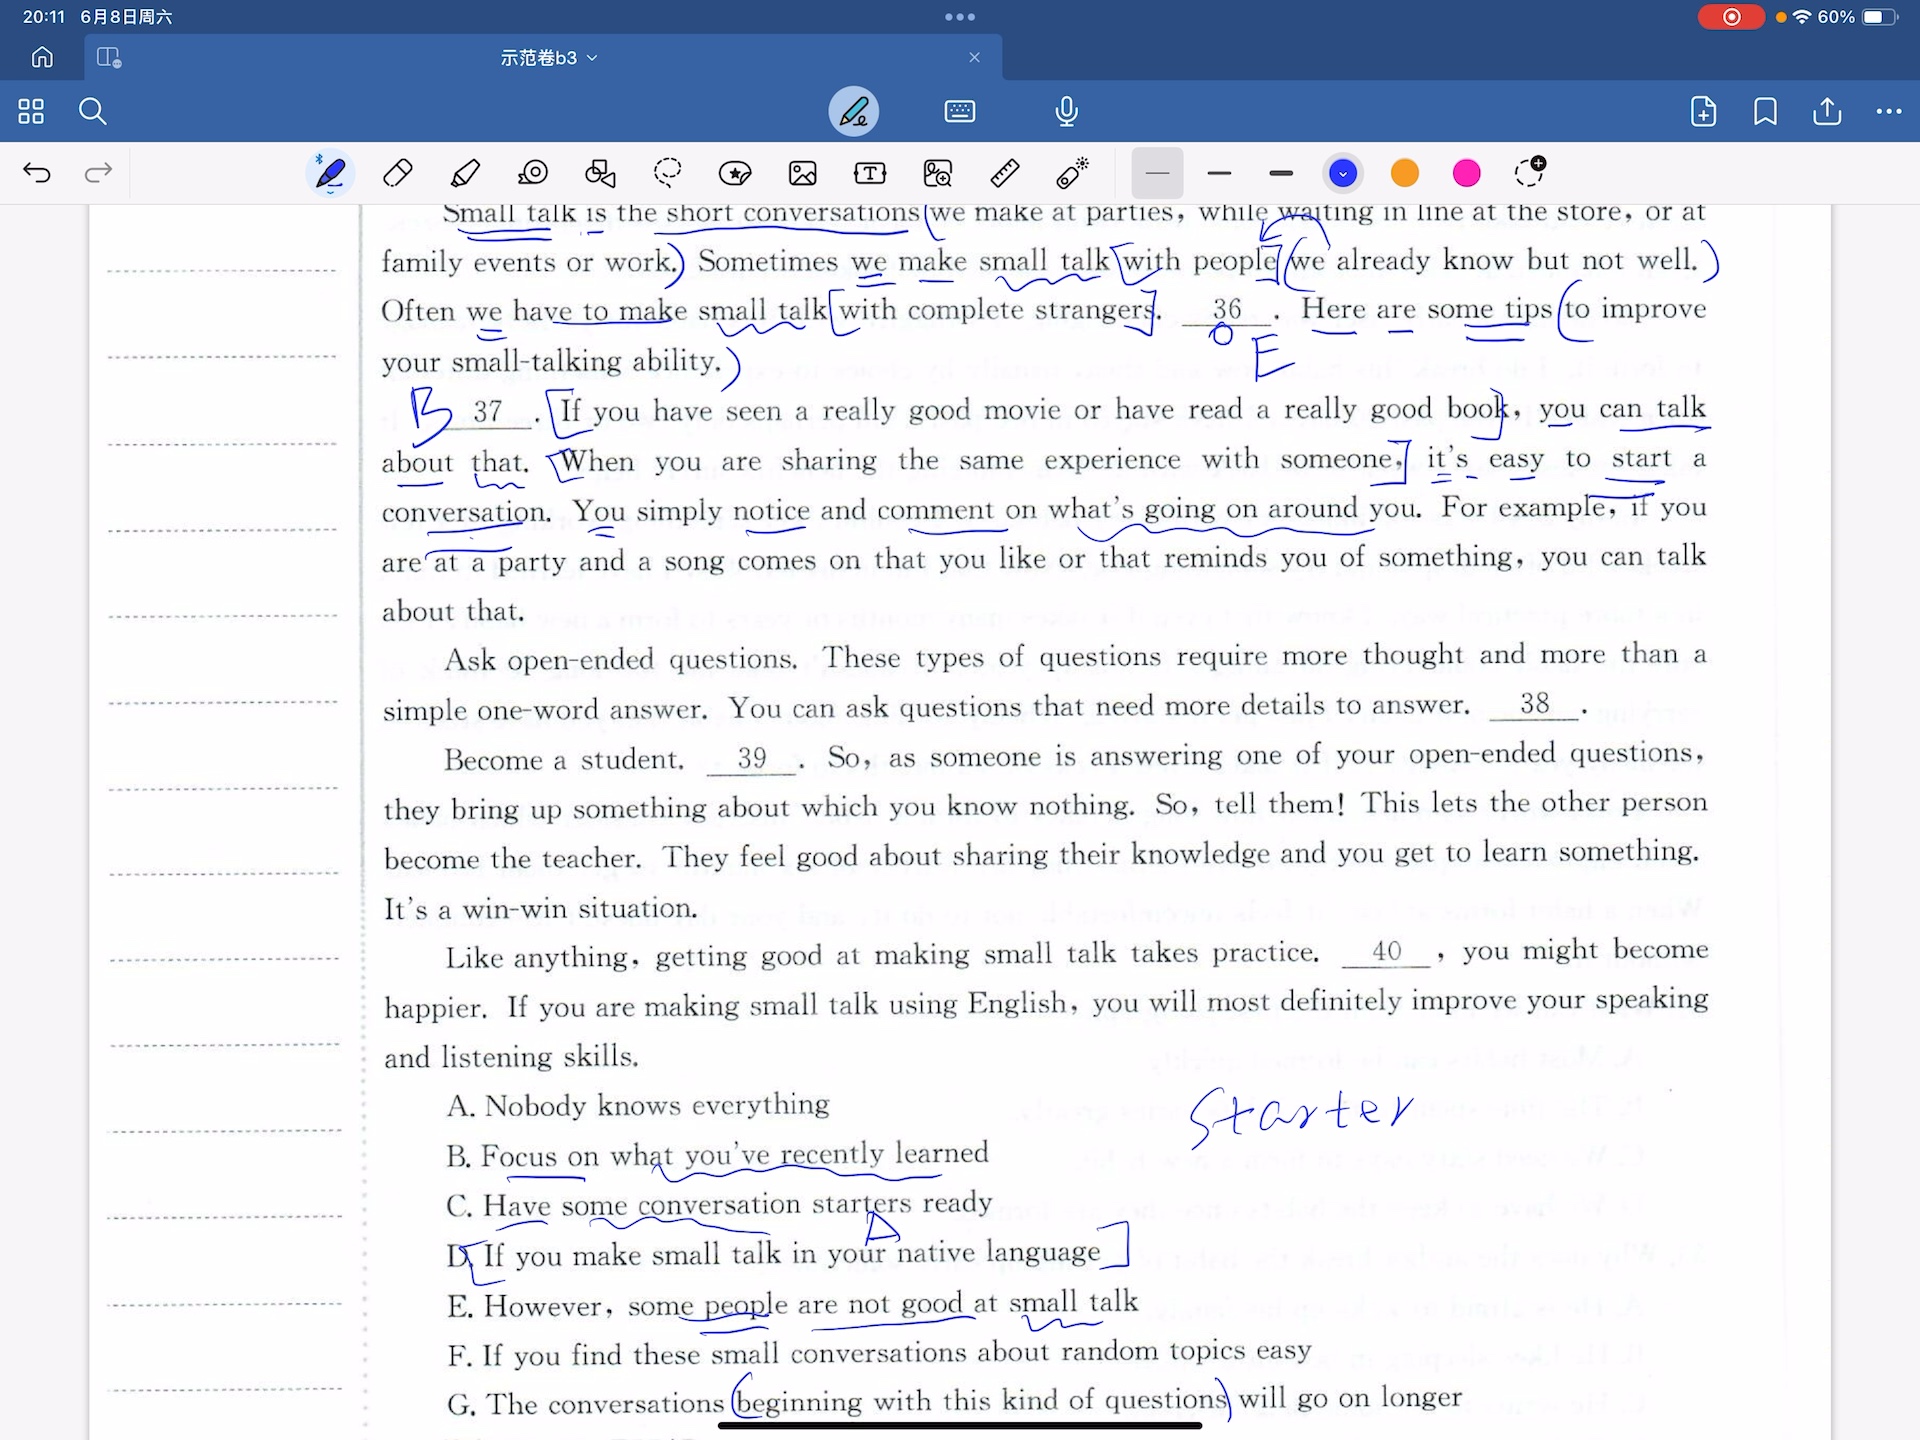 20:11 6月8日周六
60%
示范卷b3
Small talk is the short conversations we make at parties, while waiting in line at the store, or at
family events or work. Sometimes we make small talk with people we already know but not well.
Often we have to make small talk with complete strangers. 36 . Here are some tips to improve
E
your small-talking ability.
B 37 . If you have seen a really good movie or have read a really good book, you can talk
about that. When you are sharing the same experience with someone, it's easy to start a
conversation. You simply notice and comment on what's going on around you. For example, if you
are at a party and a song comes on that you like or that reminds you of something, you can talk
about that.
Ask open-ended questions. These types of questions require more thought and more than a
simple one-word answer. You can ask questions that need more details to answer. 38 .
Become a student. 39 . So, as someone is answering one of your open-ended questions,
they bring up something about which you know nothing. So, tell them! This lets the other person
become the teacher. They feel good about sharing their knowledge and you get to learn something.
It's a win-win situation.
Like anything, getting good at making small talk takes practice. 40 , you might become
happier. If you are making small talk using English, you will most definitely improve your speaking
and listening skills.
A. Nobody knows everything
starter
B. Focus on what you've recently learned
C. Have some conversation starters ready
D. If you make small talk in your native language
E. However, some people are not good at small talk
F. If you find these small conversations about random topics easy
G. The conversations beginning with this kind of questions will go on longer